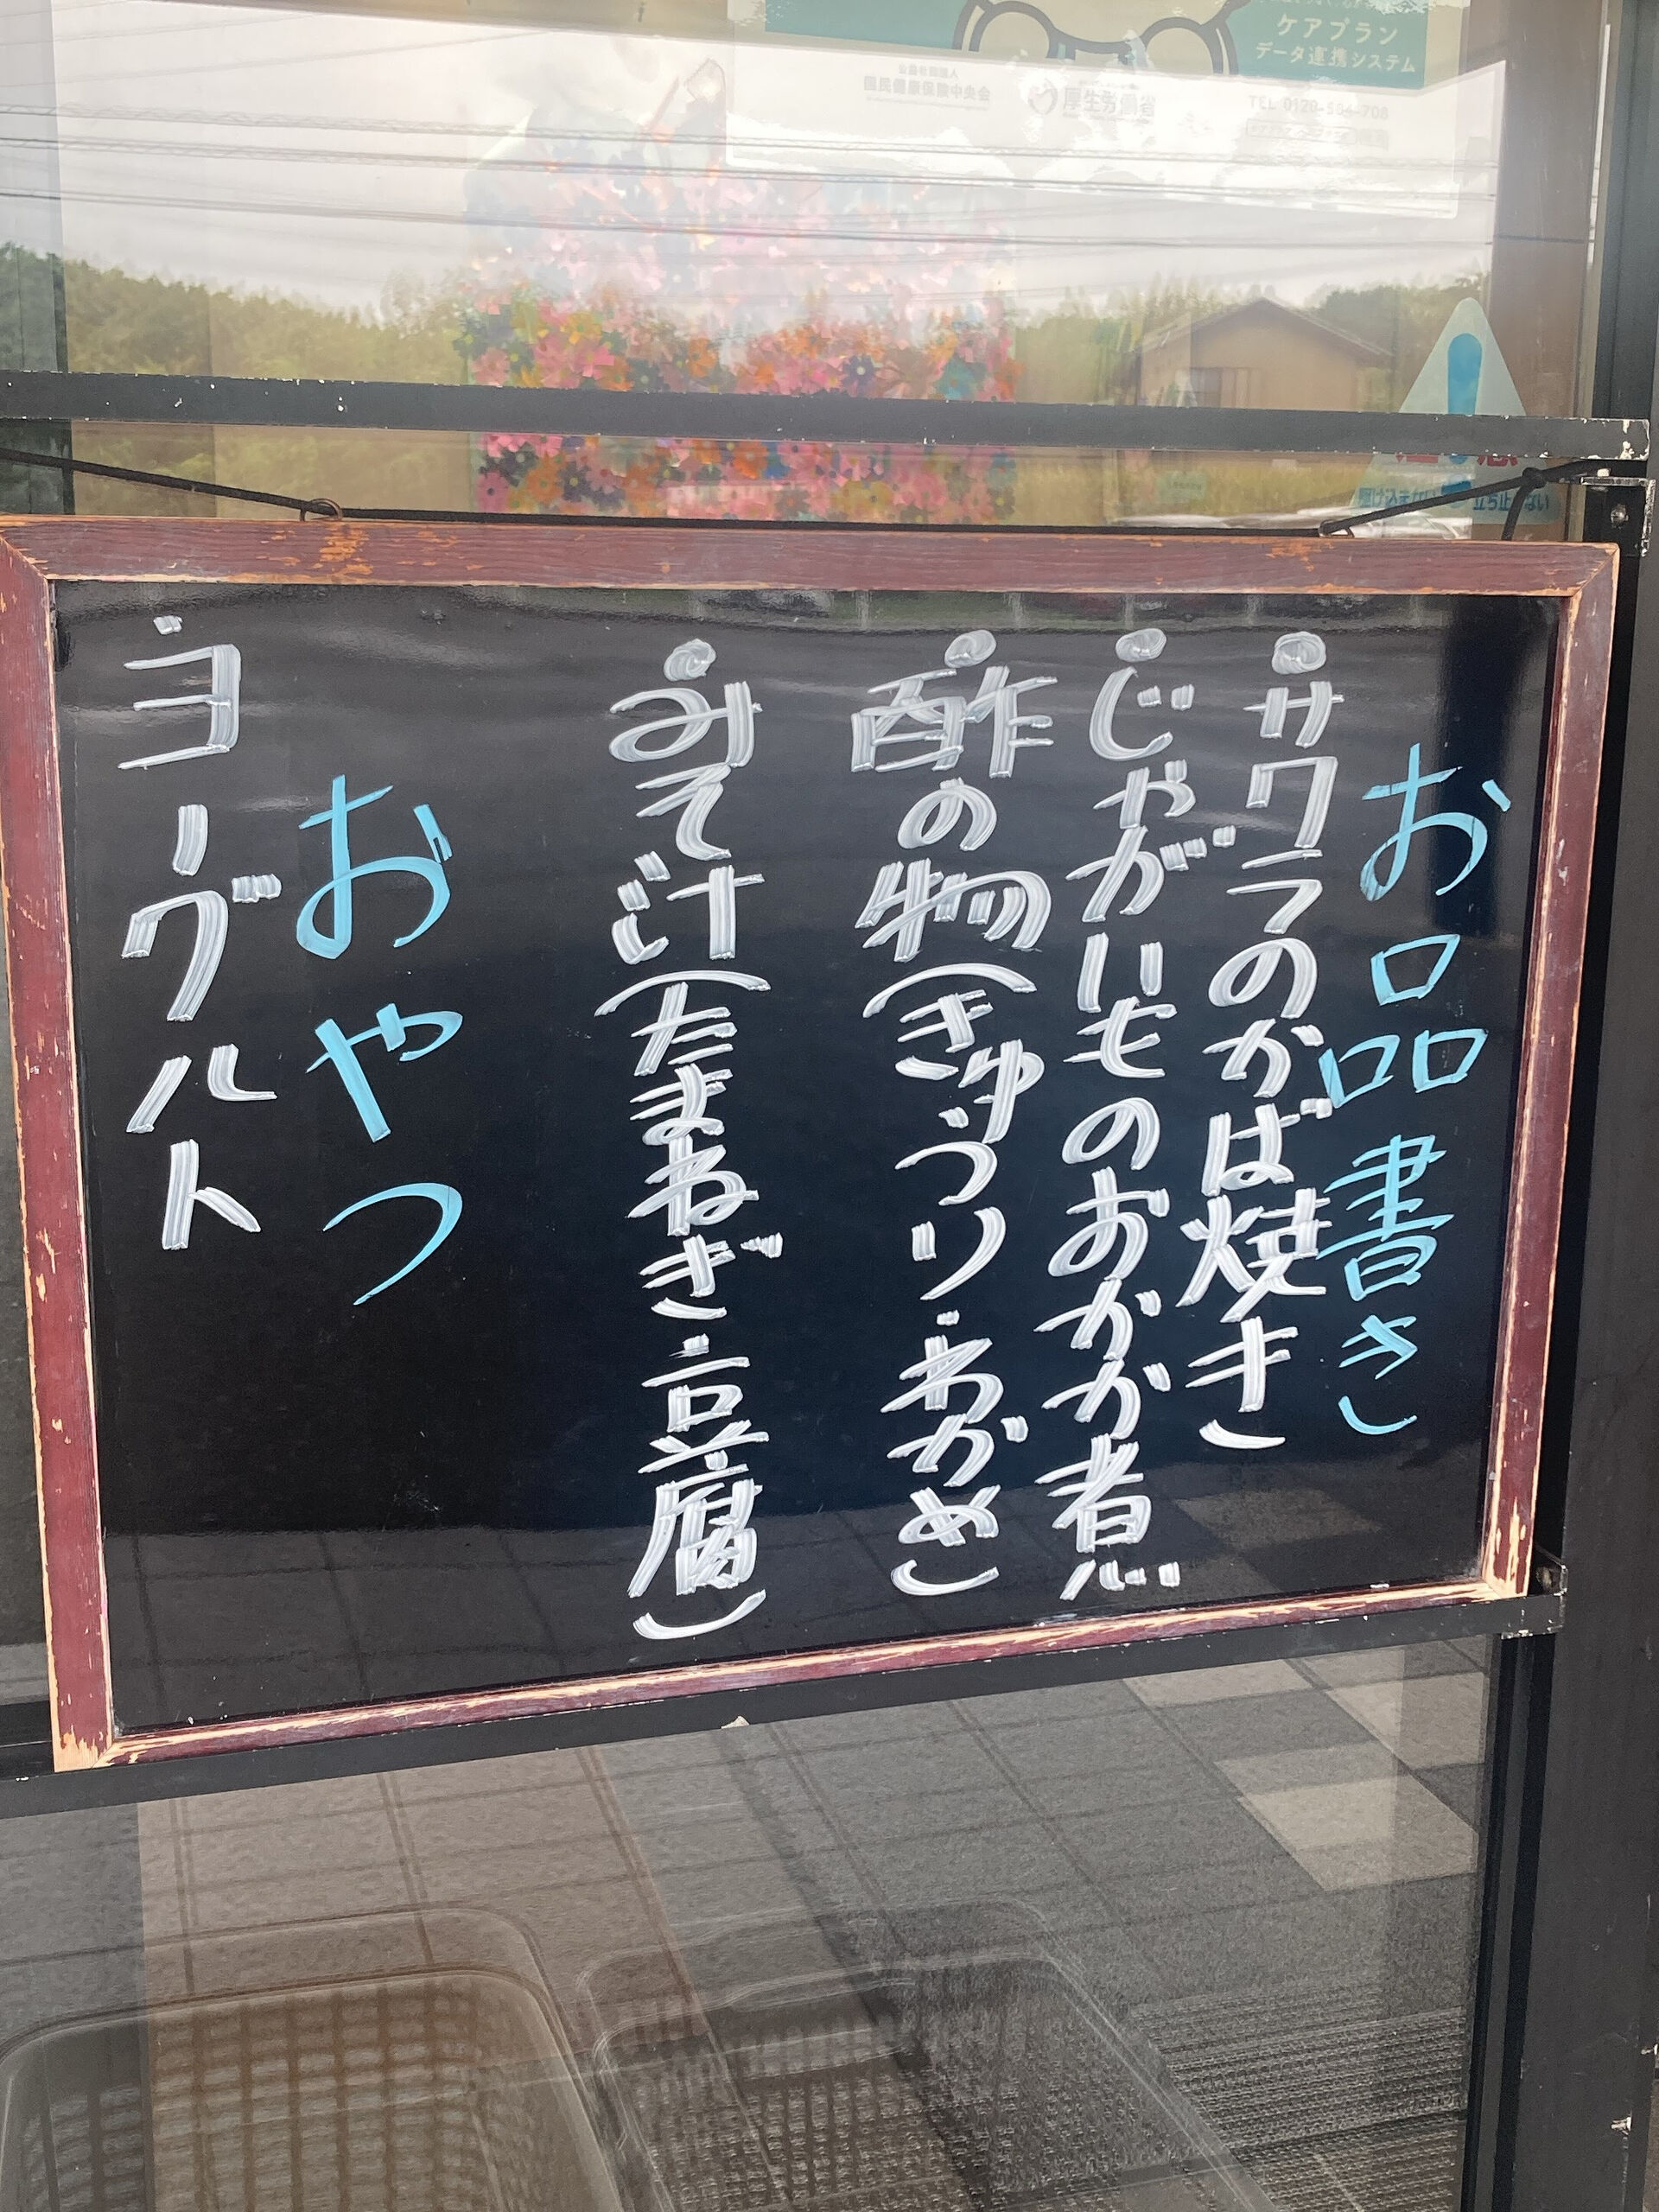 ケアプラン
データ連携システム
公益社団法人
国民健康保険中央会
厚生労働省
お品書き
・サワラのかば焼き
・じゃがいものおかか煮
・酢の物(きゅうり・わかめ)
・みそ汁(たまねぎ・豆腐)
おやつ
・ヨーグルト